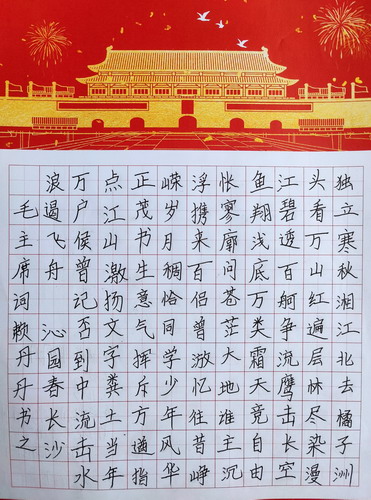 独立寒秋湘江北去橘子洲
头看万山红遍层林尽染漫
江碧透百舸争流鹰击长空
鱼翔浅底万类霜天竞自由
怅寥廓问苍茫大地谁主沉
浮携来百侣曾游忆往昔峥
嵘岁月稠恰同学少年风华
正茂书生意气挥斥方遒指
点江山激扬文字粪土当年
万户侯曾记否到中流击水
浪遏飞舟 沁园春长沙
毛主席词 赖丹丹书之